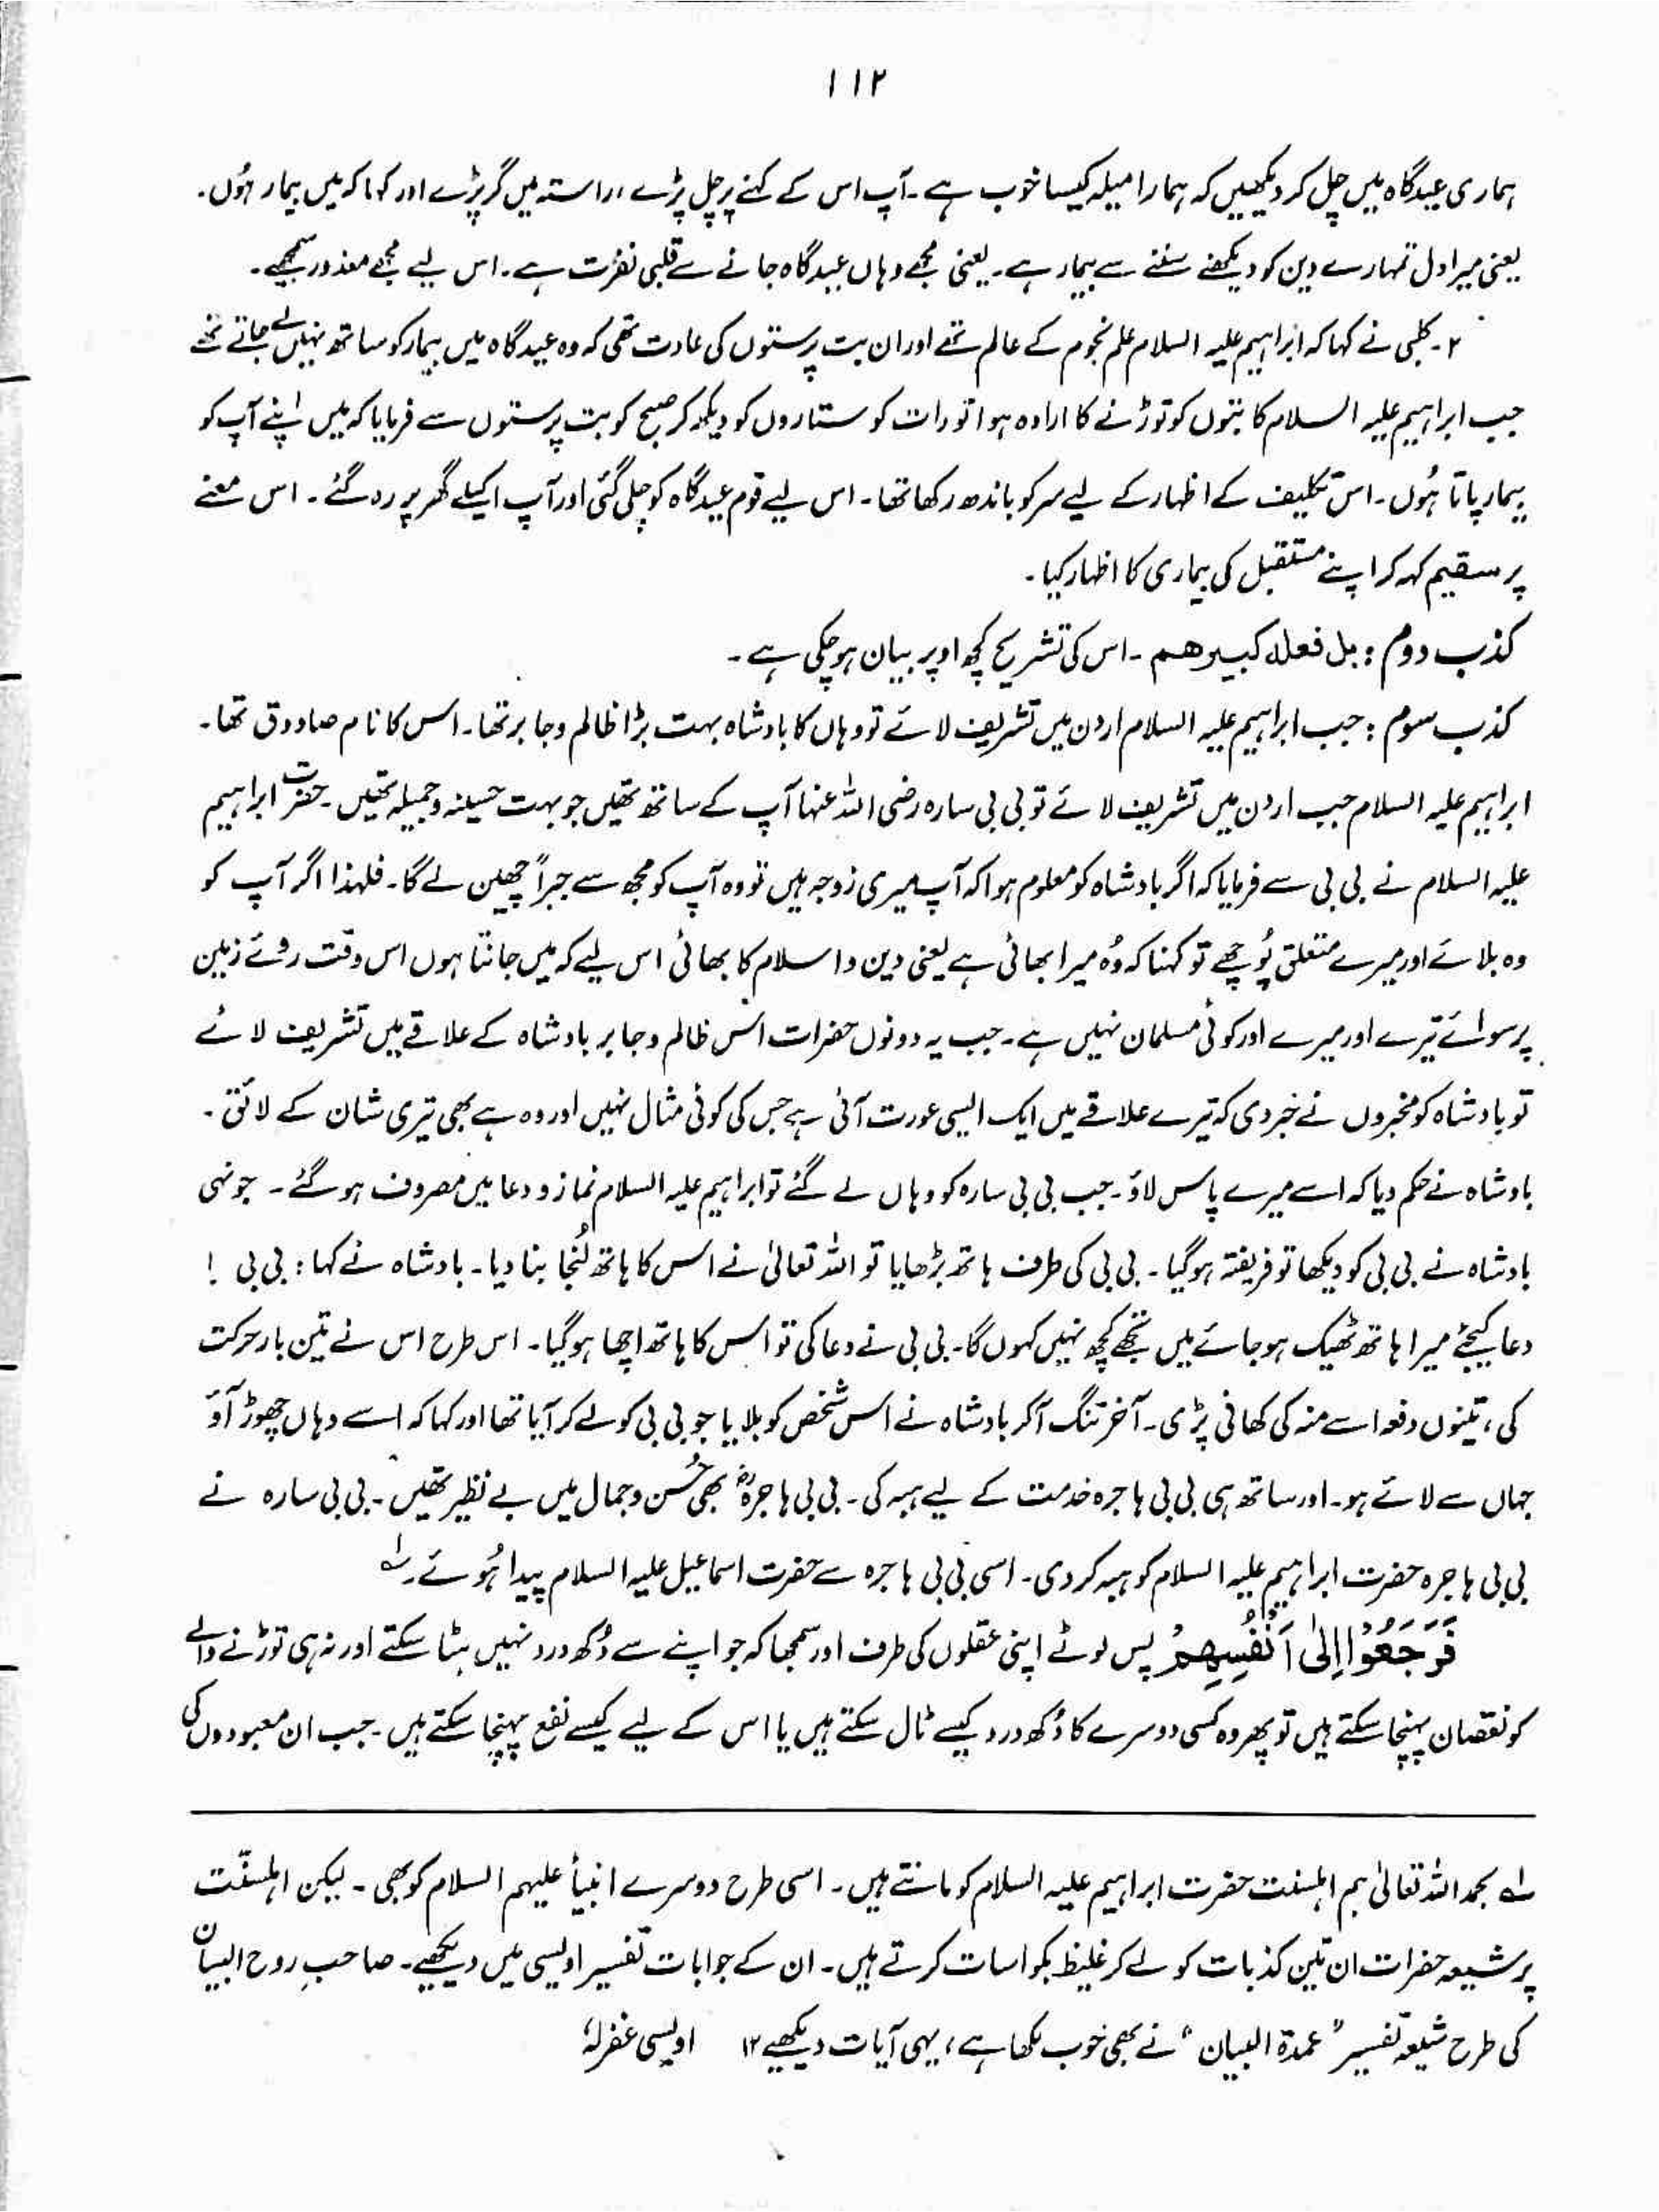 ۱۱۲
ہماری عیدگاہ میں چل کر دیکھیں کہ ہمارا میلہ کیسا خوب ہے ۔ آپ اس کے کہنے پر چل پڑے، راستہ میں گر پڑے اور کہا کہ میں بیمار ہُوں۔
یعنی میرا دل تمہارے دین کو دیکھنے سننے سے بیمار ہے۔ یعنی مجھے وہاں عیدگاہ جانے سے قلبی نفرت ہے۔ اس لیے مجھے معذور سمجھیے۔
۲۔ کلبی نے کہا کہ ابراہیم علیہ السلام علم نجوم کے عالم تھے اور ان بت پرستوں کی عادت تھی کہ وہ عیدگاہ میں بیمار کو ساتھ نہیں لے جاتے تھے
جب ابراہیم علیہ السلام کا بتوں کو توڑنے کا ارادہ ہوا تو رات کو ستاروں کو دیکھ کر صبح کو بت پرستوں سے فرمایا کہ میں اپنے آپ کو
بیمار پاتا ہُوں۔ اس تکلیف کے اظہار کے لیے سر کو باندھ رکھا تھا۔ اس لیے قوم عیدگاہ کو چلی گئی اور آپ اکیلے گھر پر رہ گئے ۔ اس معنے
پر سقیم کہہ کر اپنے مستقبل کی بیماری کا اظہار کیا۔
کذب دوم : بل فعلہ کبیرھم ۔ اس کی تشریح کچھ اوپر بیان ہو چکی ہے ۔
کذب سوم : جب ابراہیم علیہ السلام اردن میں تشریف لائے تو وہاں کا بادشاہ بہت بڑا ظالم و جابر تھا۔ اس کا نام صادوق تھا۔
ابراہیم علیہ السلام جب اردن میں تشریف لائے تو بی بی سارہ رضی اللہ عنہا آپ کے ساتھ تھیں جو بہت حسینہ و جمیلہ تھیں ۔ حضرت ابراہیم
علیہ السلام نے بی بی سے فرمایا کہ اگر بادشاہ کو معلوم ہوا کہ آپ میری زوجہ ہیں تو وہ آپ کو مجھ سے جبراً چھین لے گا۔ فلہذا اگر آپ کو
وہ بلائے اور میرے متعلق پُوچھے تو کہنا کہ وُہ میرا بھائی ہے یعنی دین و اسلام کا بھائی اس لیے کہ میں جانتا ہوں اس وقت روئے زمین
پر سوائے تیرے اور میرے اور کوئی مسلمان نہیں ہے ۔ جب یہ دونوں حضرات اس ظالم و جابر بادشاہ کے علاقے میں تشریف لائے
تو بادشاہ کو مخبروں نے خبر دی کہ تیرے علاقے میں ایک ایسی عورت آئی ہے جس کی کوئی مثال نہیں اور وہ ہے بھی تیری شان کے لائق ۔
بادشاہ نے حکم دیا کہ اسے میرے پاس لاؤ۔ جب بی بی سارہ کو وہاں لے گئے تو ابراہیم علیہ السلام نماز و دعا میں مصروف ہو گئے ۔ جونہی
بادشاہ نے بی بی کو دیکھا تو فریفتہ ہو گیا ۔ بی بی کی طرف ہاتھ بڑھایا تو اللہ تعالیٰ نے اس کا ہاتھ لُنجا بنا دیا۔ بادشاہ نے کہا : بی بی !
دعا کیجئے میرا ہاتھ ٹھیک ہو جائے میں تجھے کچھ نہیں کہوں گا۔ بی بی نے دعا کی تو اس کا ہاتھ اچھا ہو گیا۔ اس طرح اس نے تین بار حرکت
کی، تینوں دفعہ اسے منہ کی کھانی پڑی ۔ آخر تنگ آکر بادشاہ نے اس شخص کو بلایا جو بی بی کو لے کر آیا تھا اور کہا کہ اسے وہاں چھوڑ آؤ
جہاں سے لائے ہو۔ اور ساتھ ہی بی بی ہاجرہ خدمت کے لیے ہبہ کی ۔ بی بی ہاجرہؓ بھی حُسن و جمال میں بے نظیر تھیں ۔ بی بی سارہ نے
بی بی ہاجرہ حضرت ابراہیم علیہ السلام کو ہبہ کر دی ۔ اسی بی بی ہاجرہ سے حضرت اسماعیل علیہ السلام پیدا ہُوئے۔ لہ
فَرَجَعُوْٓا اِلٰٓی اَنْفُسِھِمْ پس لوٹے اپنی عقلوں کی طرف اور سمجھا کہ جو اپنے سے دُکھ درد نہیں ہٹا سکتے اور نہ ہی توڑنے والے
کو نقصان پہنچا سکتے ہیں تو پھر وہ کسی دوسرے کا دُکھ درد کیسے ٹال سکتے ہیں یا اس کے لیے کیسے نفع پہنچا سکتے ہیں ۔ جب ان معبودوں کی
لہ بحمد اللہ تعالیٰ ہم اہلسنت حضرت ابراہیم علیہ السلام کو مانتے ہیں ۔ اسی طرح دوسرے انبیاء علیہم السلام کو بھی ۔ لیکن اہلسنّت
پر شیعہ حضرات ان تین کذبات کو لے کر غلیظ بکواسات کرتے ہیں ۔ ان کے جوابات تفسیر اویسی میں دیکھیے۔ صاحبِ روح البیان
کی طرح شیعہ تفسیر "عمدۃ البیان" نے بھی خوب لکھا ہے، یہی آیات دیکھیے ۱۲ اویسی غفرلہٗ